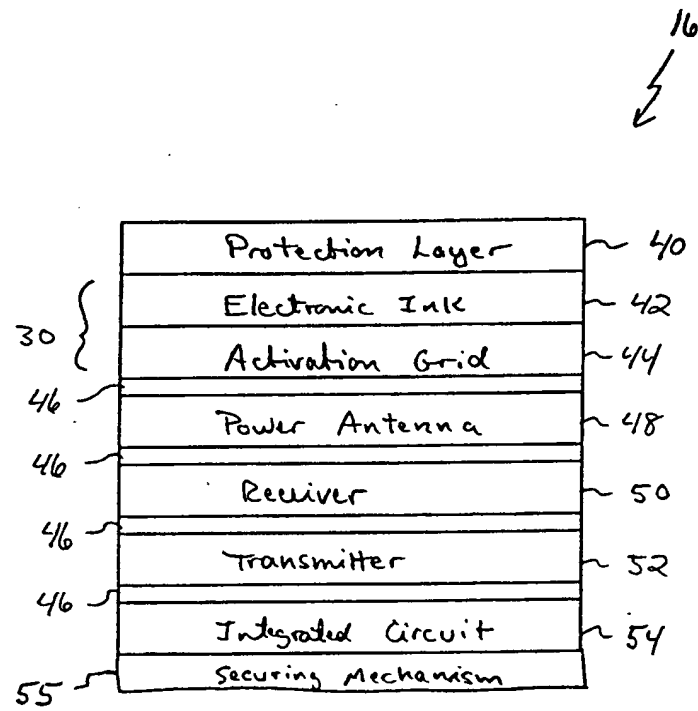 16
Protection Layer 40
Electronic Ink 42
30
Activation Grid 44
46
Power Antenna 48
46
Receiver 50
46
Transmitter 52
46
Integrated Circuit 54
Securing Mechanism
55